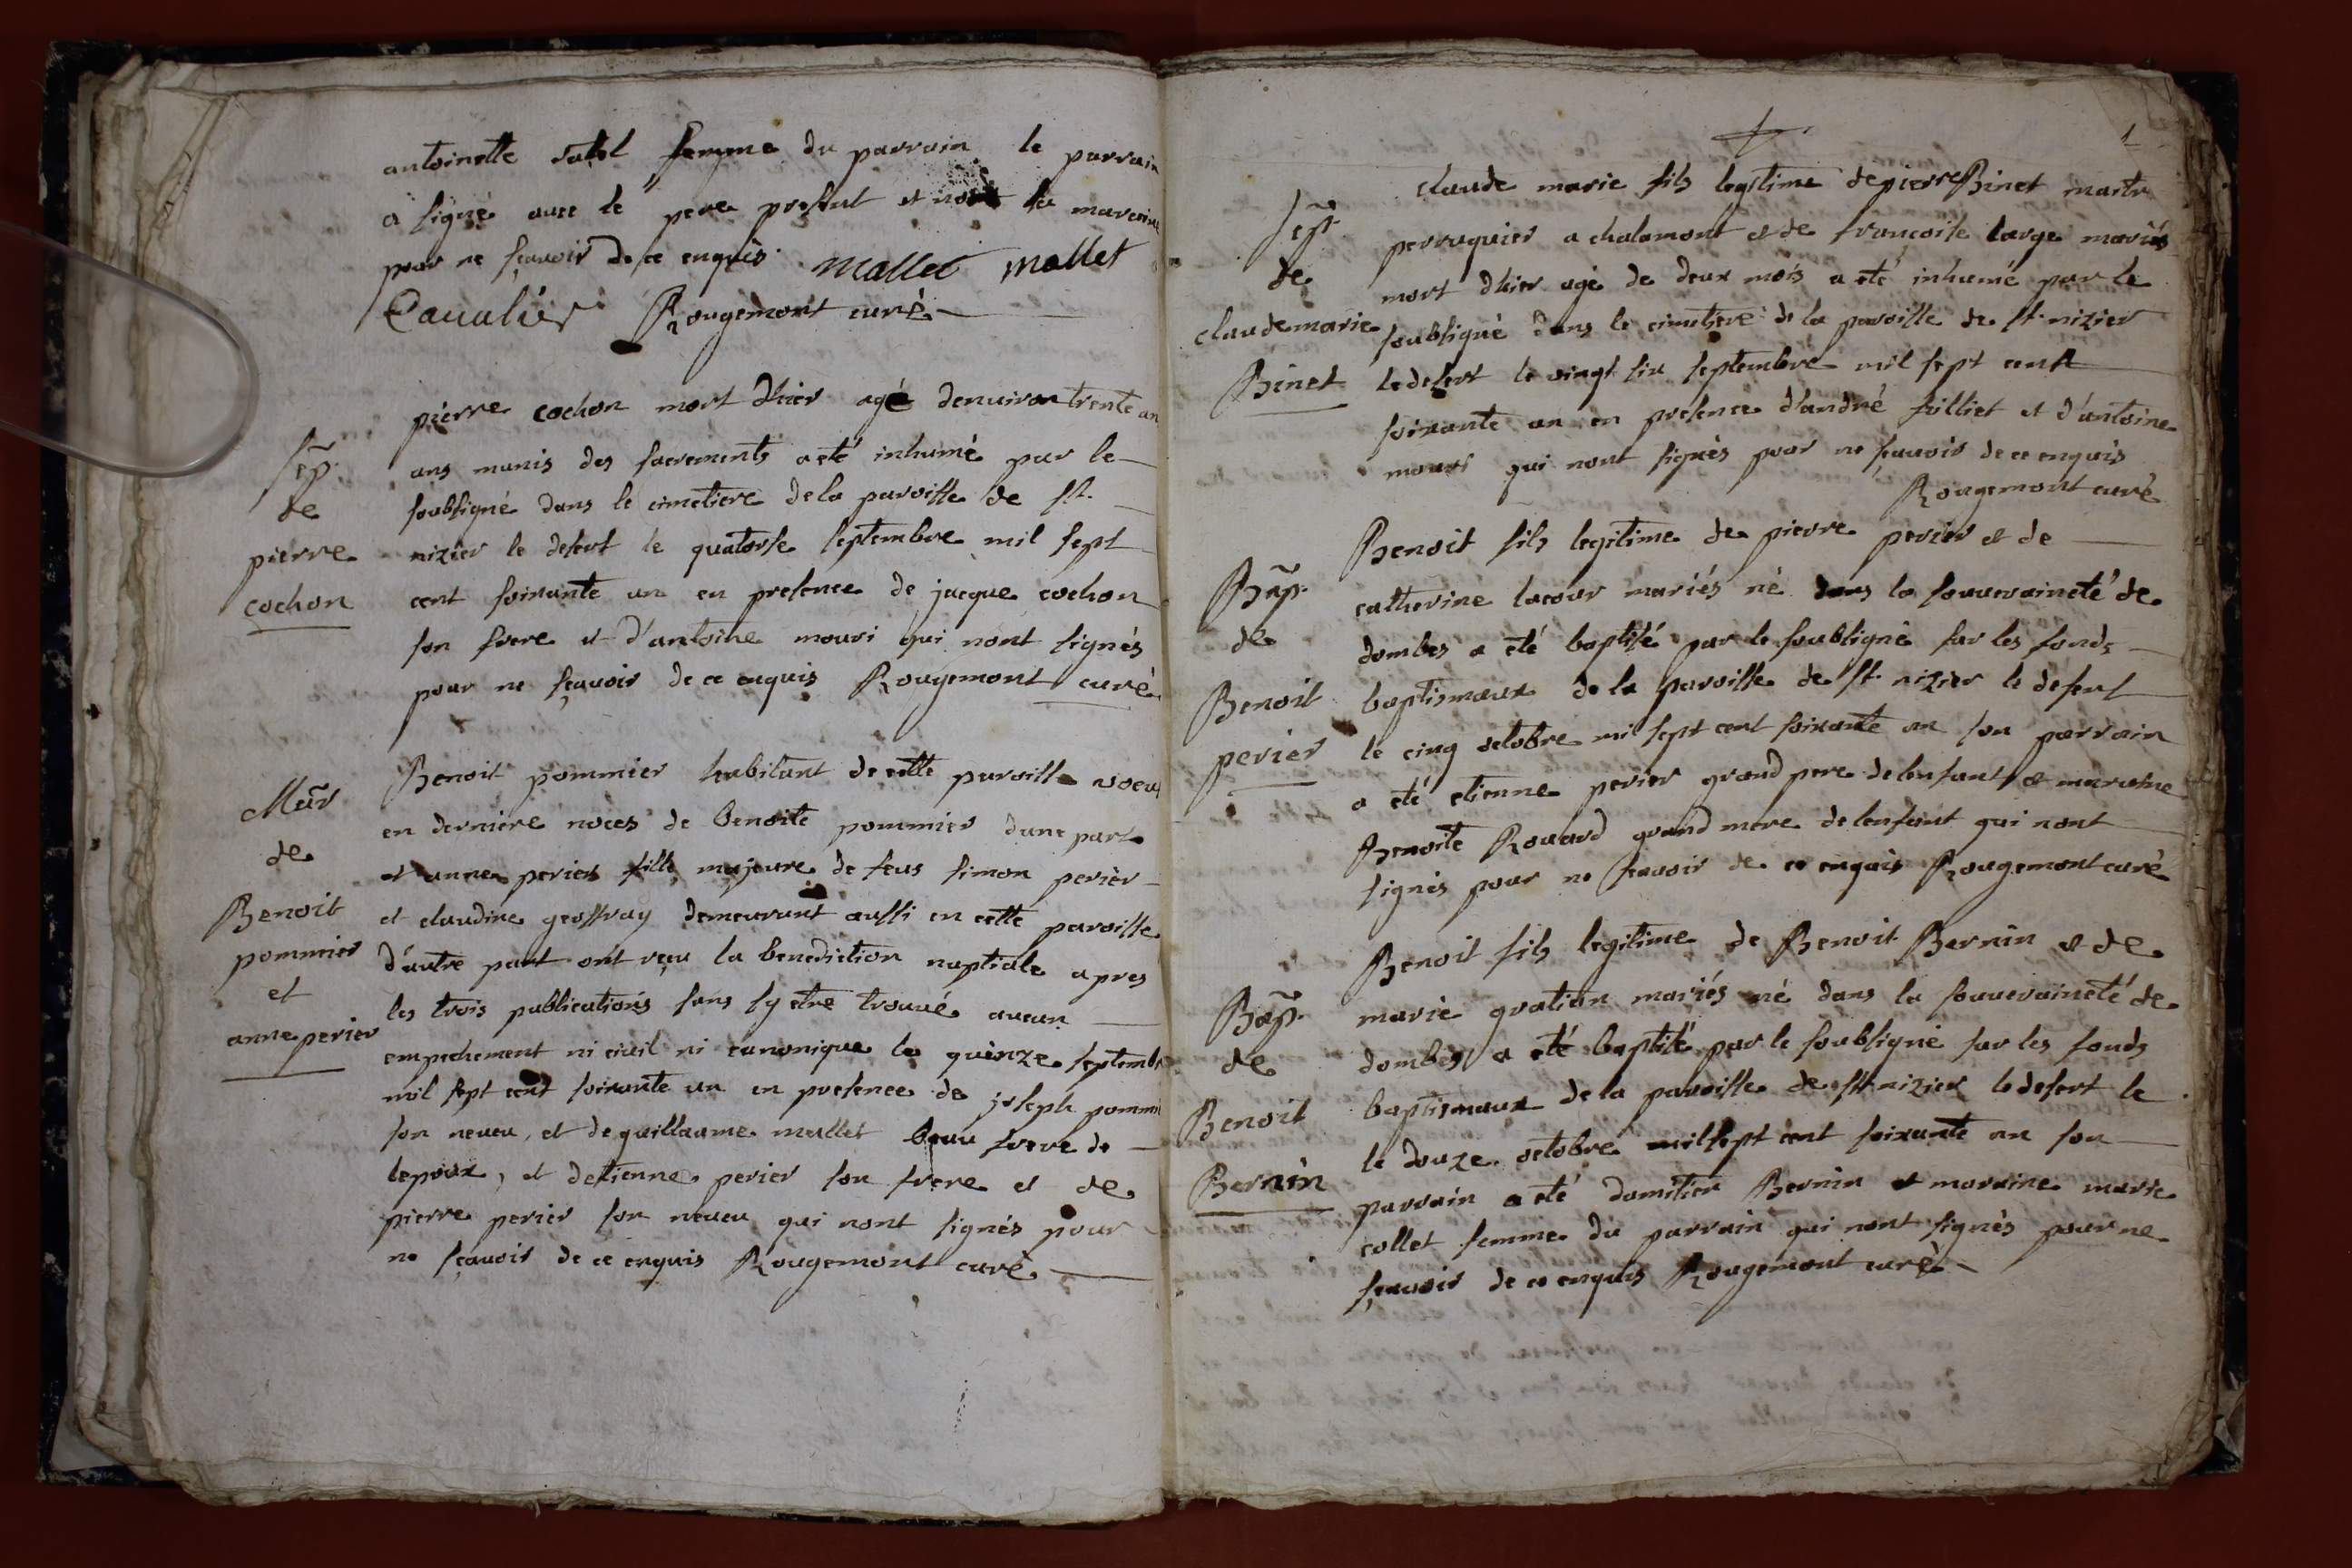 antoinette femme du parrain le parrain
a signé avec le pere present et non la maraine
pour ne sçavoir de ce enquis mallet mallet
Cavalier Rougemont curé
Sep. de pierre cochon
pierre cochon mort dhier agé denviron trente an
ans munis des sacrements a eté inhumé par le
soubsigné dans le cimetiere de la paroisse de st.
nizier le desert le quatorse septembre mil sept
cent soixante un en presence de jacque cochon
son frere et d'antoine mouri qui nont signés
pour ne sçavoir de ce enquis Rougemont curé
Mar de Benoit pommier et anne perier
Benoit pommier habitant de cette paroisse
en derniere noces de benoite pommier dune part
et anne perier fille majeure de feus simon perier
et claudine geoffray demeurant aussi en cette paroisse
d'autre part ont reçu la benediction nuptiale apres
les trois publications sans sy etre trouvé aucun
empechement ni civil ni canonique le quinze septembre
mil sept cent soixante un en presence de joseph pommi
son neveu, et de guillaume mallet beau frere de
lepoux, et detienne perier son frere et de
pierre perier son neveu qui nont signés pour
ne sçavoir de ce enquis Rougemont curé
1
Sep. de claude marie Binet
claude marie fils legitime de pierre Binet maitre
perruquier a chalamont et de francoise large mariés
mort dhier agé de deux mois a eté inhumé par le
soubsigné dans le cimetiere de la paroisse de st. nizier
le desert le vingt six septembre mil sept cent
soixante un en presence d'andré filliet et d'antoine
mouri qui nont signés pour ne sçavoir de ce enquis
Rougemont curé
Bap. de Benoit perier
Benoit fils legitime de pierre perier et de
catherine lacour mariés né dans la souveraineté de
dombes a eté baptisé par le soubsigné sur les fonds
baptismaux de la paroisse de st. nizier le desert
le cinq octobre mil sept cent soixante un son parrain
a eté etienne perier grand pere de lenfant et maraine
Benoite Rouard grand mere de lenfant qui nont
signés pour ne sçavoir de ce enquis Rougemont curé
Bap. de Benoit Bernin
Benoit fils legitime de Benoit Bernin et de
marie gratian mariés né dans la souveraineté de
dombes a eté baptisé par le soubsigné sur les fonds
baptismaux de la paroisse de st. nizier le desert le
le douze octobre mil sept cent soixante un son
parrain a eté domitien Bernin et maraine marie
collet femme du parrain qui nont signés pour ne
sçavoir de ce enquis Rougemont curé